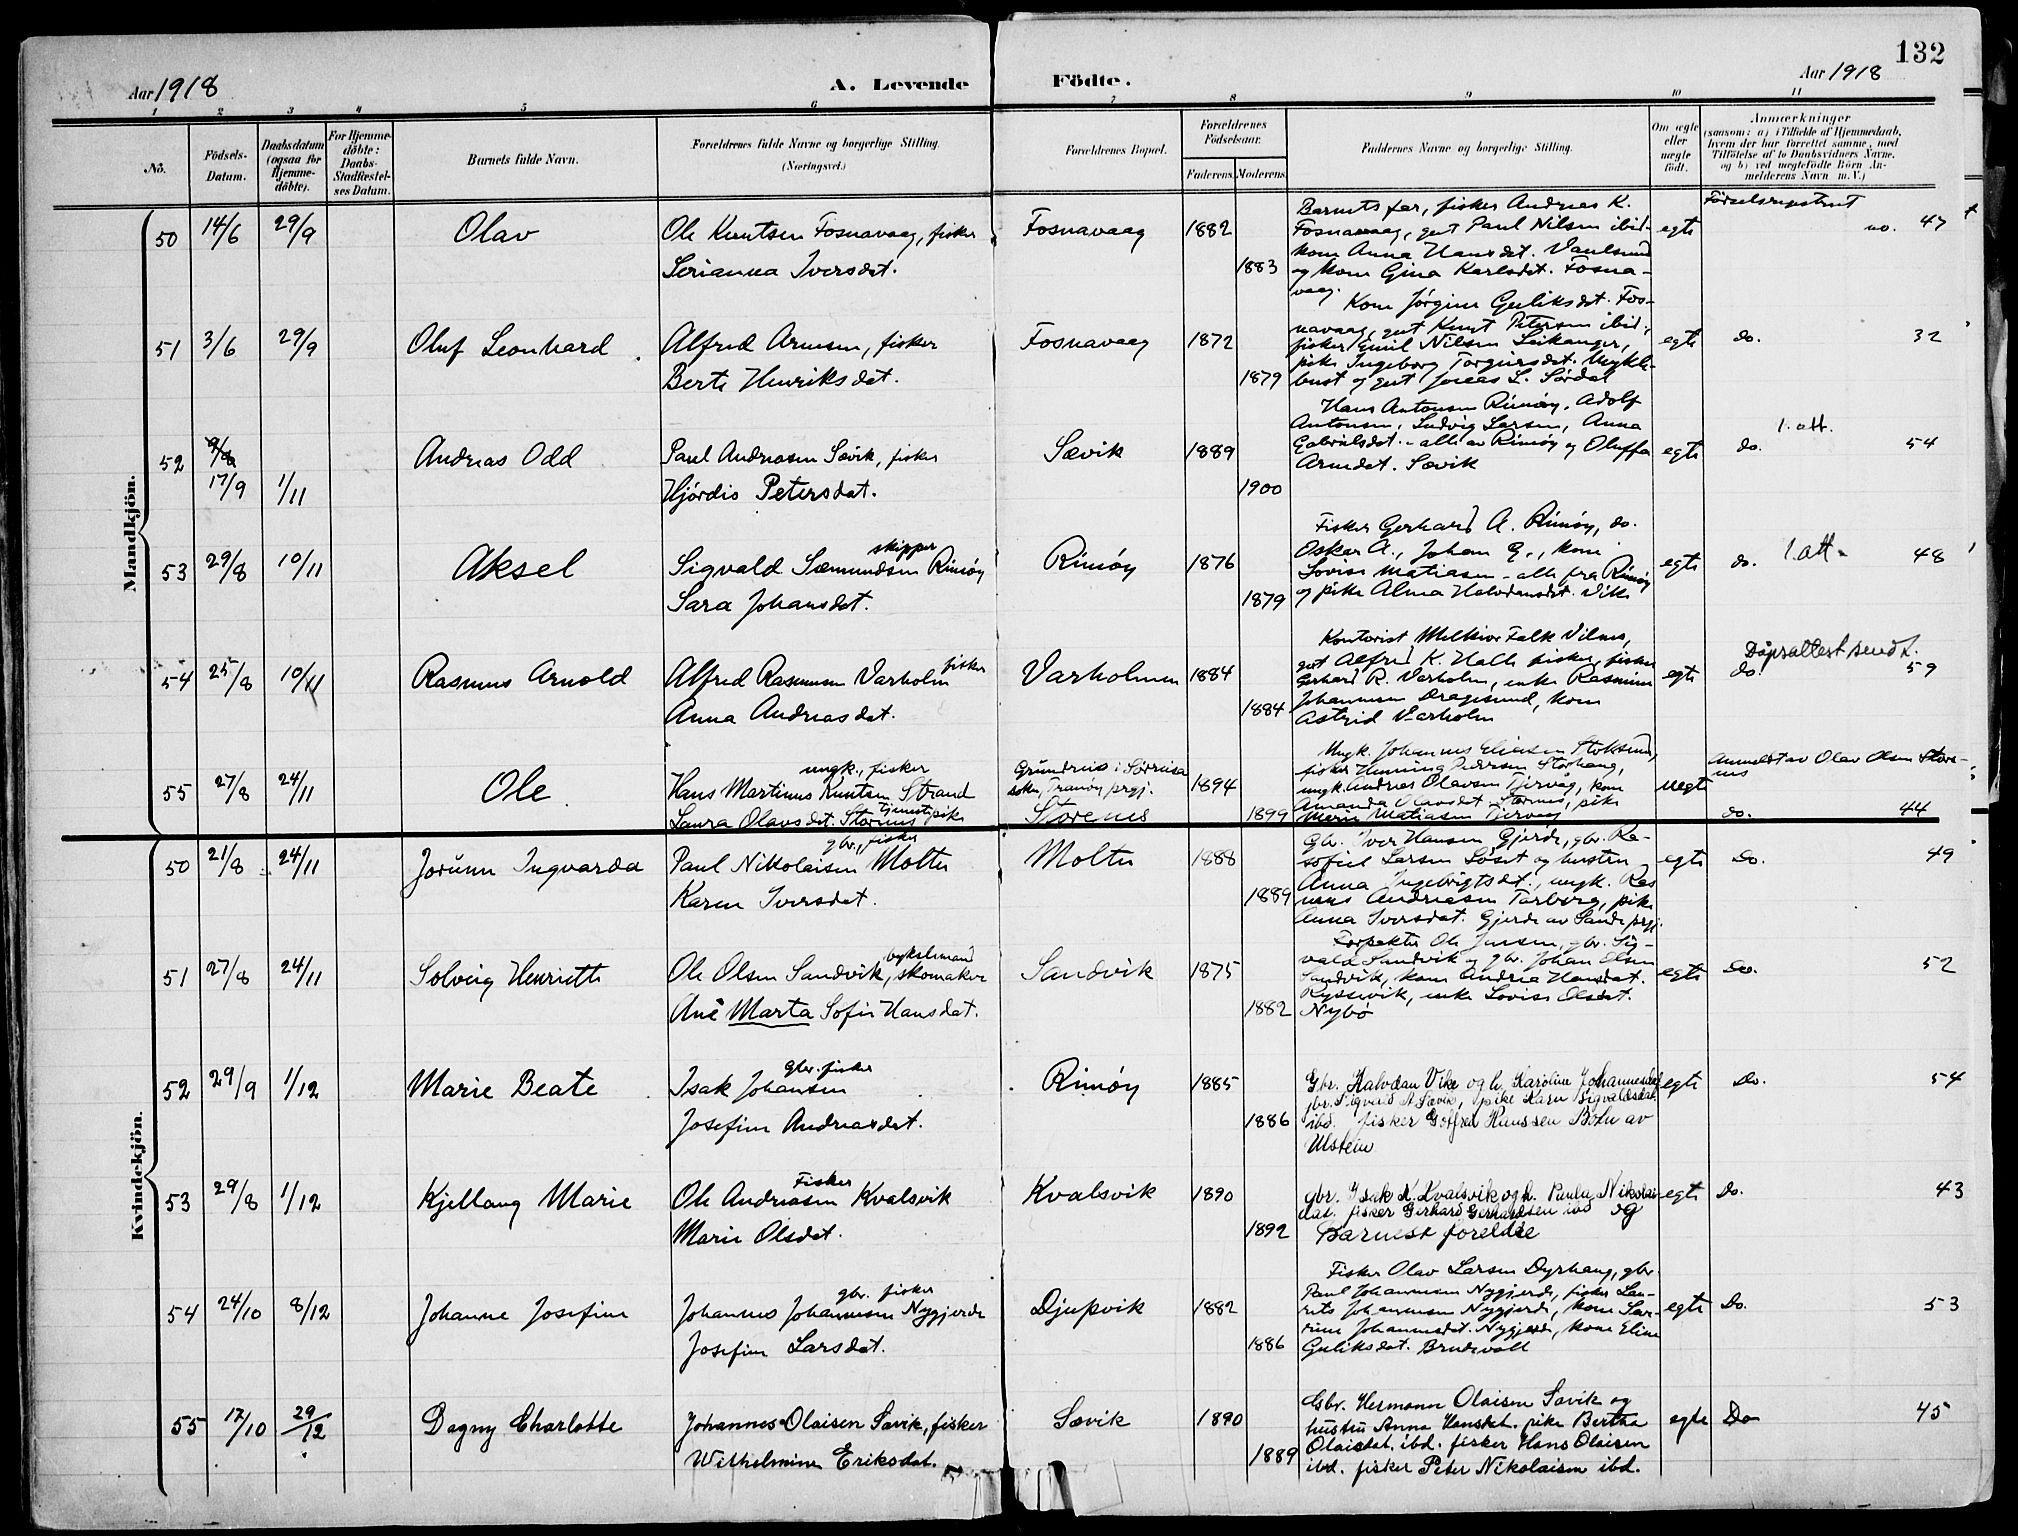 132
Aar 1918
A. Levende Födte.
Aar 1918
1 2 3 4 5 6 7 8 9 10 11
No.
Födsels-
Datum.
Daabsdatum
(ogsaa for
Hjemme-
döbte).
For Hjemme-
döbte:
Daabs-
Stadfæstel-
ses Datum.
Barnets fulde Navn.
Forældrenes fulde Navne og borgerlige Stilling.
(Næringsvei.)
Forældrenes Bopæl.
Forældrenes
Födselsaar.
Faderens. Moderens.
Faddernes Navne og borgerlige Stilling.
Om ægte
eller
uægte
födt.
Anmærkninger
(saasom: a) i Tilfælde af Hjemmedaab,
hvem der har forrettet samme, med
Tilföielse af to Daabsvidners Navne,
og b) ved uægtefödte Börn An-
melderens Navn m. V.)
Mandkjön.
50 14/6 29/9 Olav
Ole Knutsen Fosnavaag, fisker
Serianna Iversdat.
Fosnavaag 1882
1883
Barnets far, fisker Andreas K.
Fosnavaag, gut Paul Nilsen ibid.
kone Anna Hansdat. Vaulsund
og kone Gina Karlsdat. Fosna-
vaag.
egte
Fødselsregistret
no. 47
51 3/6 29/9 Oluf Leonhard
Alfred Arnesen, fisker
Berte Henriksdat.
Fosnavaag 1872
1879
Kone Jørgine Guliksdat. Fos-
navaag, gut Knut Petersen ibid.,
fisker Emil Nilsen Leikanger,
pike Ingeborg Torgeirsdat. Mykle-
bust og gut Jonas L. Sørdal
egte do. 32
52 9/8
17/9 1/11 Andreas Odd
Paul Andreasen Sævik, fisker
Hjørdis Petersdat.
Sævik 1889
1900
Hans Antonsen Rimøy, Adolf
Antonsen, Ludvig Larsen, Anna
Gabrielsdat. - alle av Rimøy og Oluffa
Arnedat. Sævik
egte do. 1. att. 54
53 29/8 10/11 Aksel
skipper
Sigvald Sæmundsen Rimøy
Sara Johansdat.
Rimøy 1876
1879
Fisker Gerhard A. Rimøy, do.
Oskar A., Johan G., kone
Lovise Matiasen - alle fra Rimøy
og pike Alma Halvdansdat. Vike
egte do. 1. att. 48
54 25/8 10/11 Rasmus Arnold
Alfred Rasmussen Varholm fisker
Anna Andreasdat.
Varholmen 1884
1884
Kontorist Melkior Falk Vilnes,
gut Alfred K. Halle fisker, fisker
Gerhard R. Varholm, enke Rasmine
Johannesen Dragesund, kone
Astrid Varholm
egte
Døpsattest sendt.
do. 59
55 27/8 24/11 Ole
ungk., fisker
Hans Martinus Knutsen Strand
Laura Olavsdat. Storenes tjenestepike
Grundreis i Sørreisa
sokn, Tranøy prgj.
Storenes
1894
1899
Ungk. Johannes Eliasen Stoksund,
fisker Henning Pedersen Storhaug,
ungk. Andreas Olavsen Tjervåg, kone
Amanda Olavsdat. Storenes, pike
Marie Matiasen Tjervåg
uegte
Anmeldt av Olav Olsen Store-
nes
do. 44
Kvindekjön.
50 21/8 24/11 Jorunn Ingvarda
gbr., fisker
Paul Nikolaisen Moltu
Karen Iversdat.
Moltu 1888
1889
Gbr. Iver Hansen Gjerde, gbr. Ra-
sofiel Larsen Løset og hustru
Anna Ingebrigtsdat., ungk. Ras-
mus Andreasen Tarberg, pike
Anna Iversdat. Gjerde av Sande prgj.
egte Do. 49
51 27/8 24/11 Solveig Henriette
bykslmand
Ole Olsen Sandvik, skomaker
Ane Marta Sofie Hansdat.
Sandvik 1875
1882
Forpakter Ole Jensen, gbr. Sig-
vald Sandvik og gbr. Johan Olsen
Sandvik, kone Andrea Hansdat.
Ryssevik, enke Lovise Olsdat.
Nybø
egte Do. 52
52 29/9 1/12 Marie Beate
gbr. fisker
Isak Johansen
Josefine Andreasdat.
Rimøy 1885
1886
Gbr. Halvdan Vike og h. Karoline Johannesdat
gbr. Sigvald A Sævik, pike Karen Sigvaldsdat.
ibd. fisker Gotfred Hanssen Botn av
Ulstein
egte Do. 54
53 29/8 1/12 Kjellaug Marie
Fisker
Ole Andreasen Kvalsvik
Marie Olsdat.
Kvalsvik 1890
1892
gbr. Isak K. Kvalsvik og h. Paula Nikolai-
dat. fisker Gerhard Gerhardsen ibd og
Barnest foreldre
egte Do. 43
54 24/10 8/12 Johanne Josefine
gbr. fisker
Johannes Johannesen Nygjerde
Josefine Larsdat.
Djupvik 1882
1886
Fisker Olav Larsen Dyrhaug, gbr.
Paul Johannesen Nygjerde, fisker Lau-
rits Johannesen Nygjerde, kone Sev-
rine Johannesdat. Nygjerde, kone Eline
Guliksdat. Brudevoll
egte Do. 53
55 17/10 29/12 Dagny Charlotte
Johannes Olaisen Sævik, fisker
Wilhelmine Eriksdat.
Sævik 1890
1889
Gbr. Hermann Olaisen Sævik og
hustru Anna Hansdat. pike Bertha
Olaisdat. ibd. fisker Hans Olaisen
ibd. fisker Peter Nikolaisen ibd.
egte Do 45